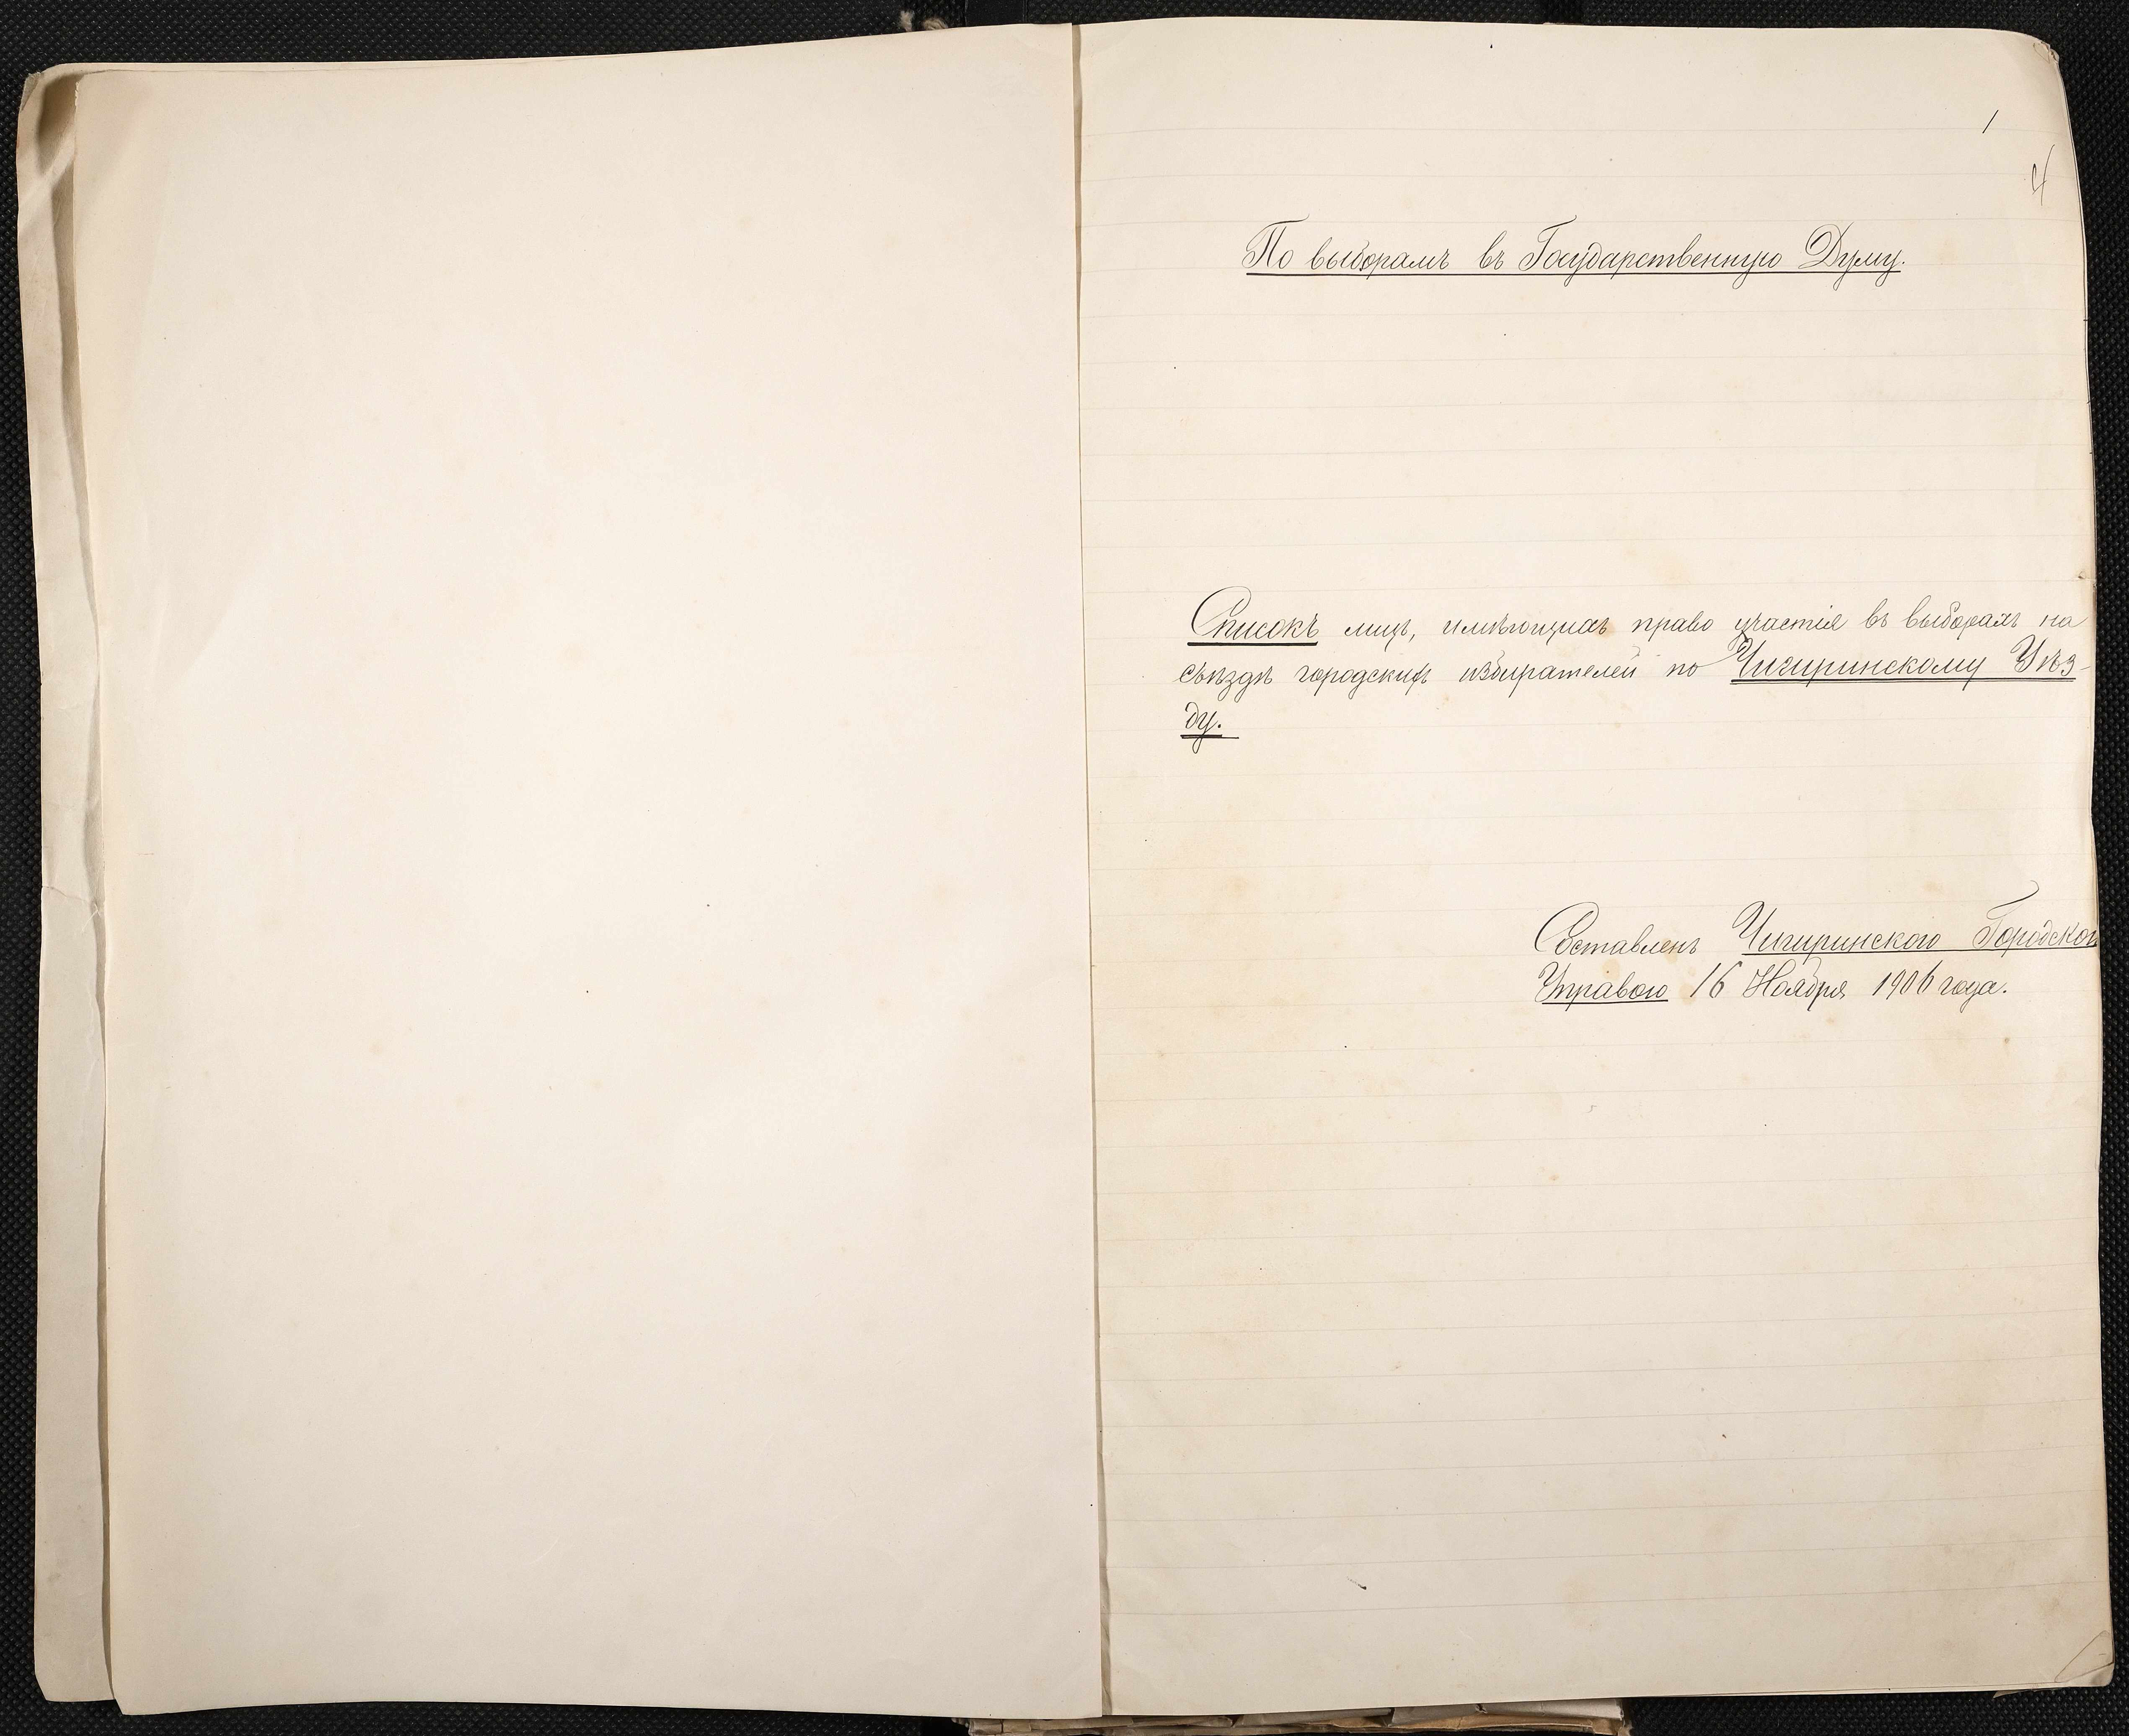 1
4
По выборамъ въ Государственную Думу.
Списокъ лицъ, имѣющихъ право участія въ выборахъ на
съѣздѣ городскихъ избирателей по Чигиринскому Уѣз-
ду.
Составленъ Чигиринского Городской
Управою 16 Ноября 1906 года.